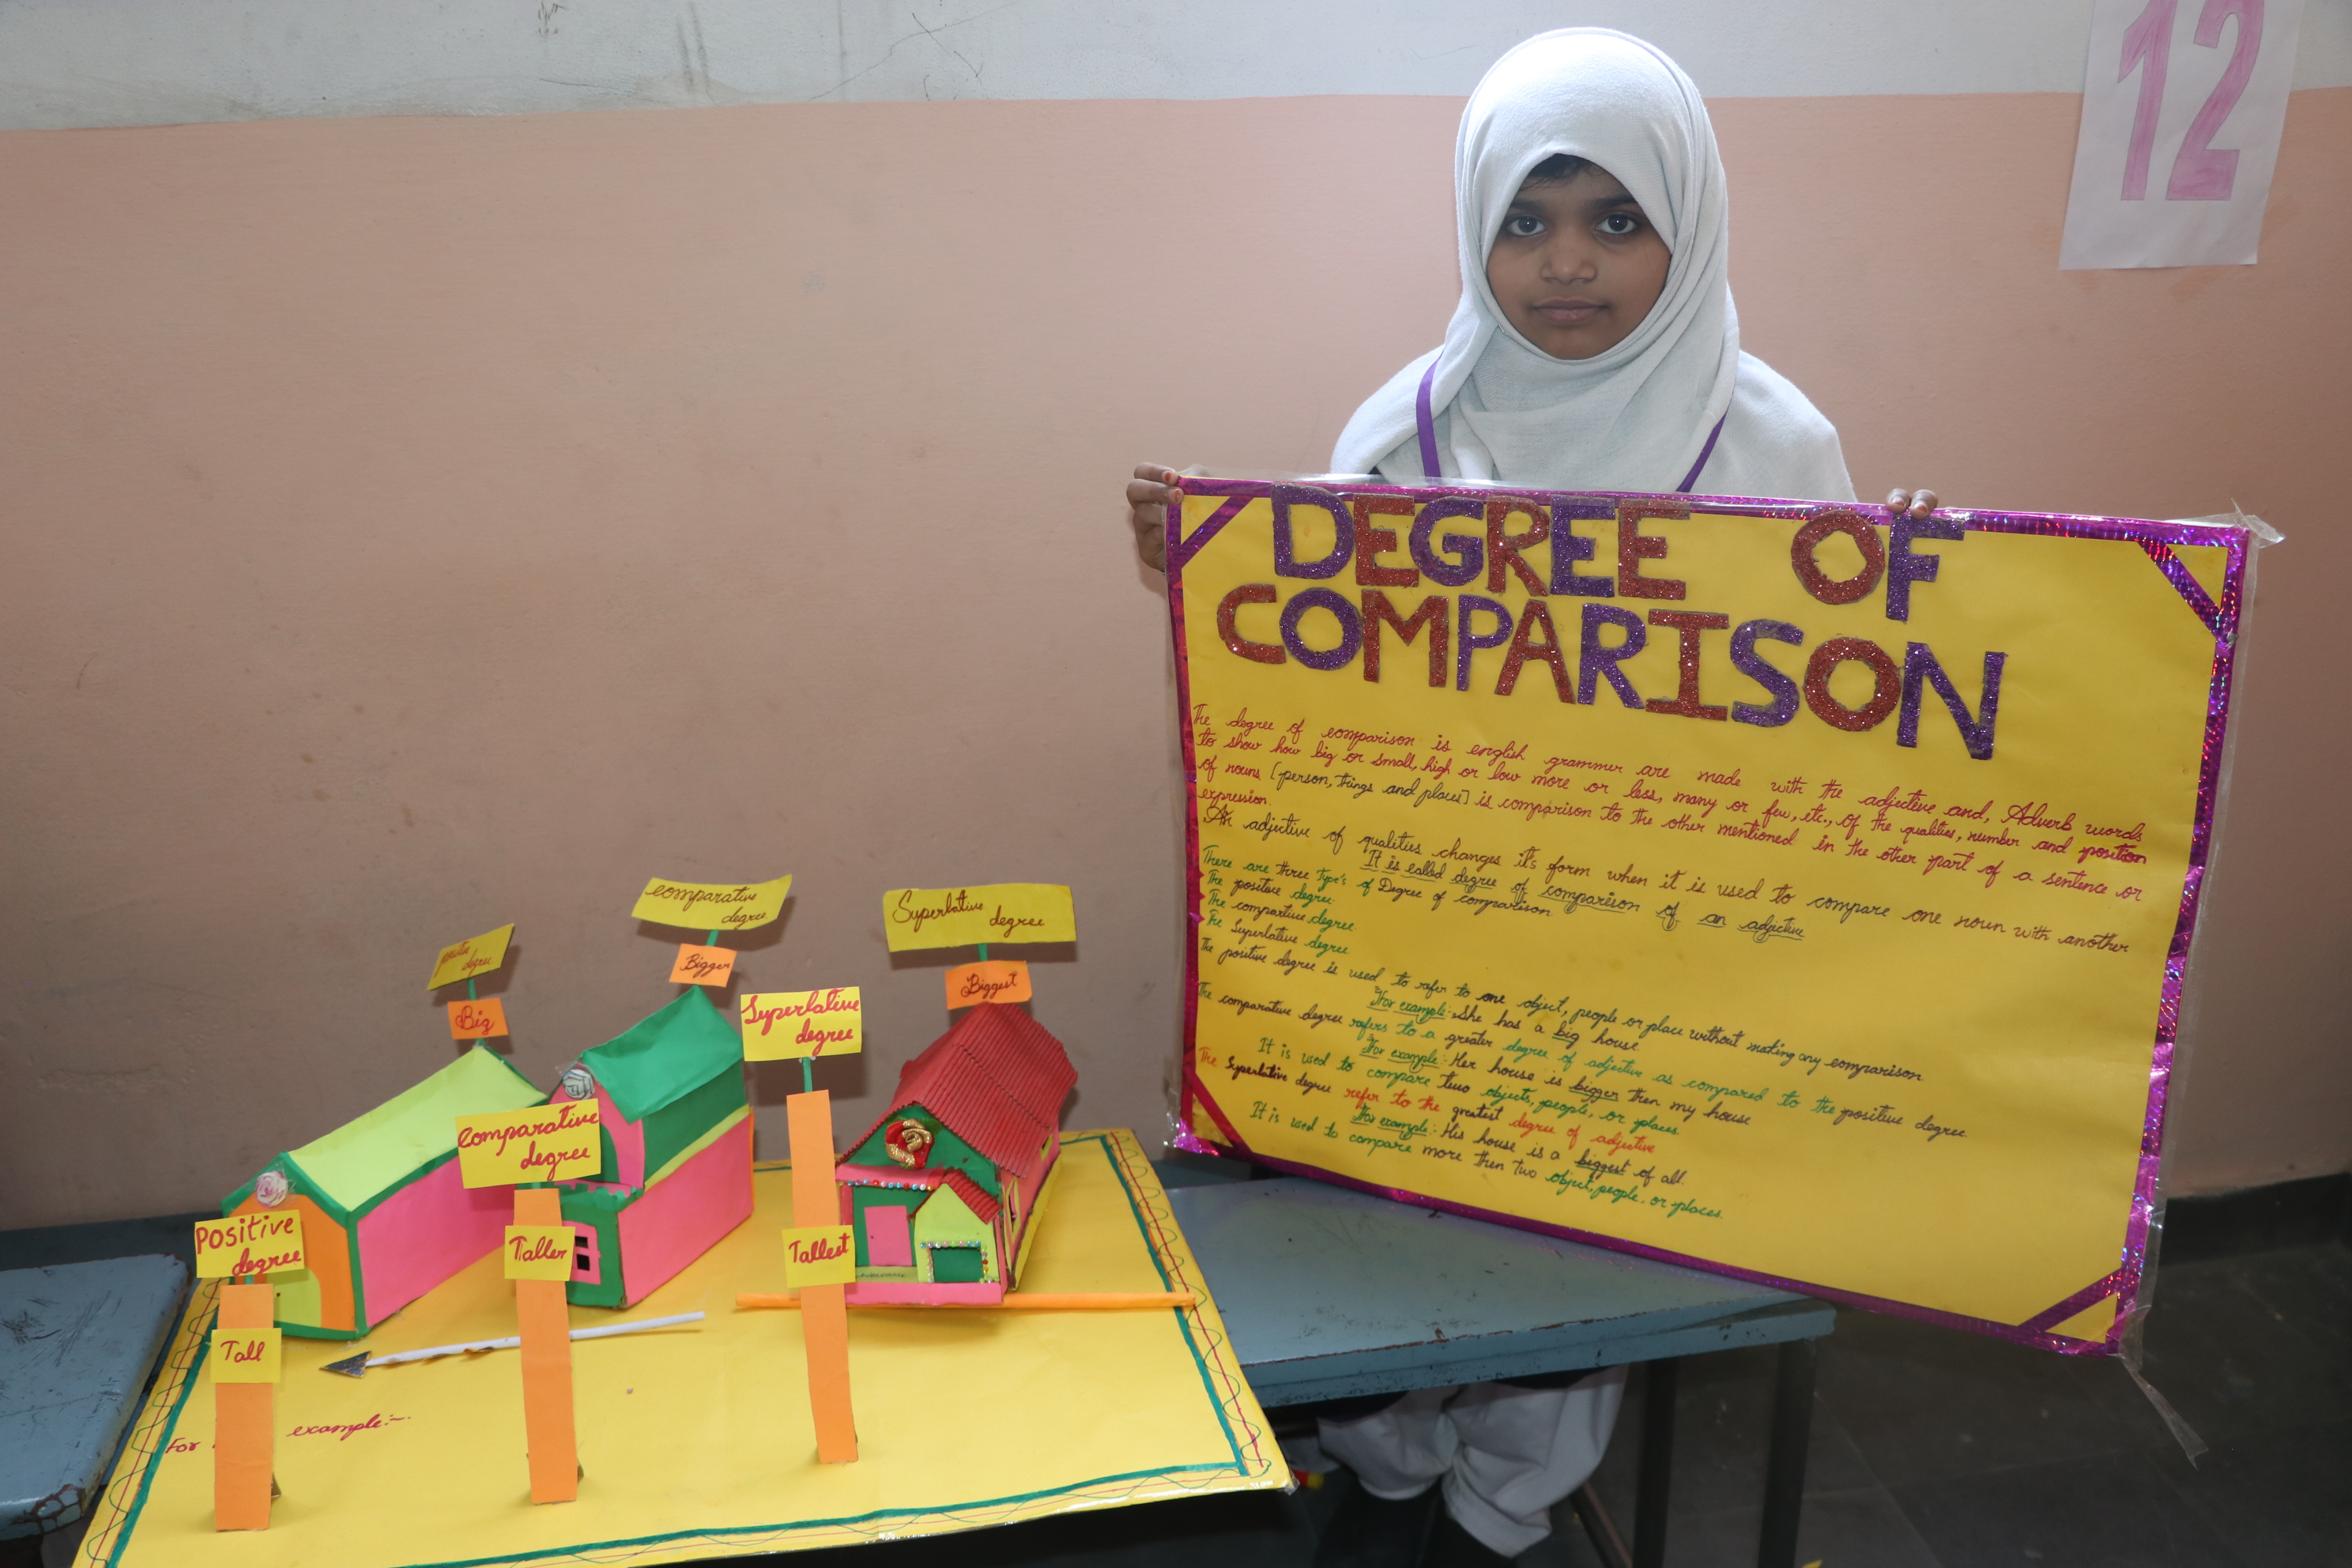 12
DEGREE OF
COMPARISON
The degree of comparison is english grammer are made with the adjective and, Adverb words
to show how big or small, high or low more or less, many or few, etc., of the qualities, number and position
of nouns [person, things and places] is comparison to the other mentioned in the other part of a sentence or
expression.
An adjective of qualities changes it's form when it is used to compare one noun with another
It is called degree of comparison of an adjective
There are three type's of Degree of comparison
The positive degree
The compartive degree
The Superlative degree
The positive degree is used to refer to one object, people or place without making any comparison
For example:- She has a big house
The comparative degree refers to a greater degree of adjective as compared to the positive degree.
For example: Her house is bigger then my house
It is used to compare two objects, people, or places.
The Superlative degree refer to the greatest degree of adjective
For example: His house is a biggest of all.
It is used to compare more then two object, people. or places.
degree
Big
comparative
degree
Bigger
Superlative
degree
Biggest
Positive
degree
Tall
Comparative
degree
Taller
Superlative
degree
Tallest
For example:-